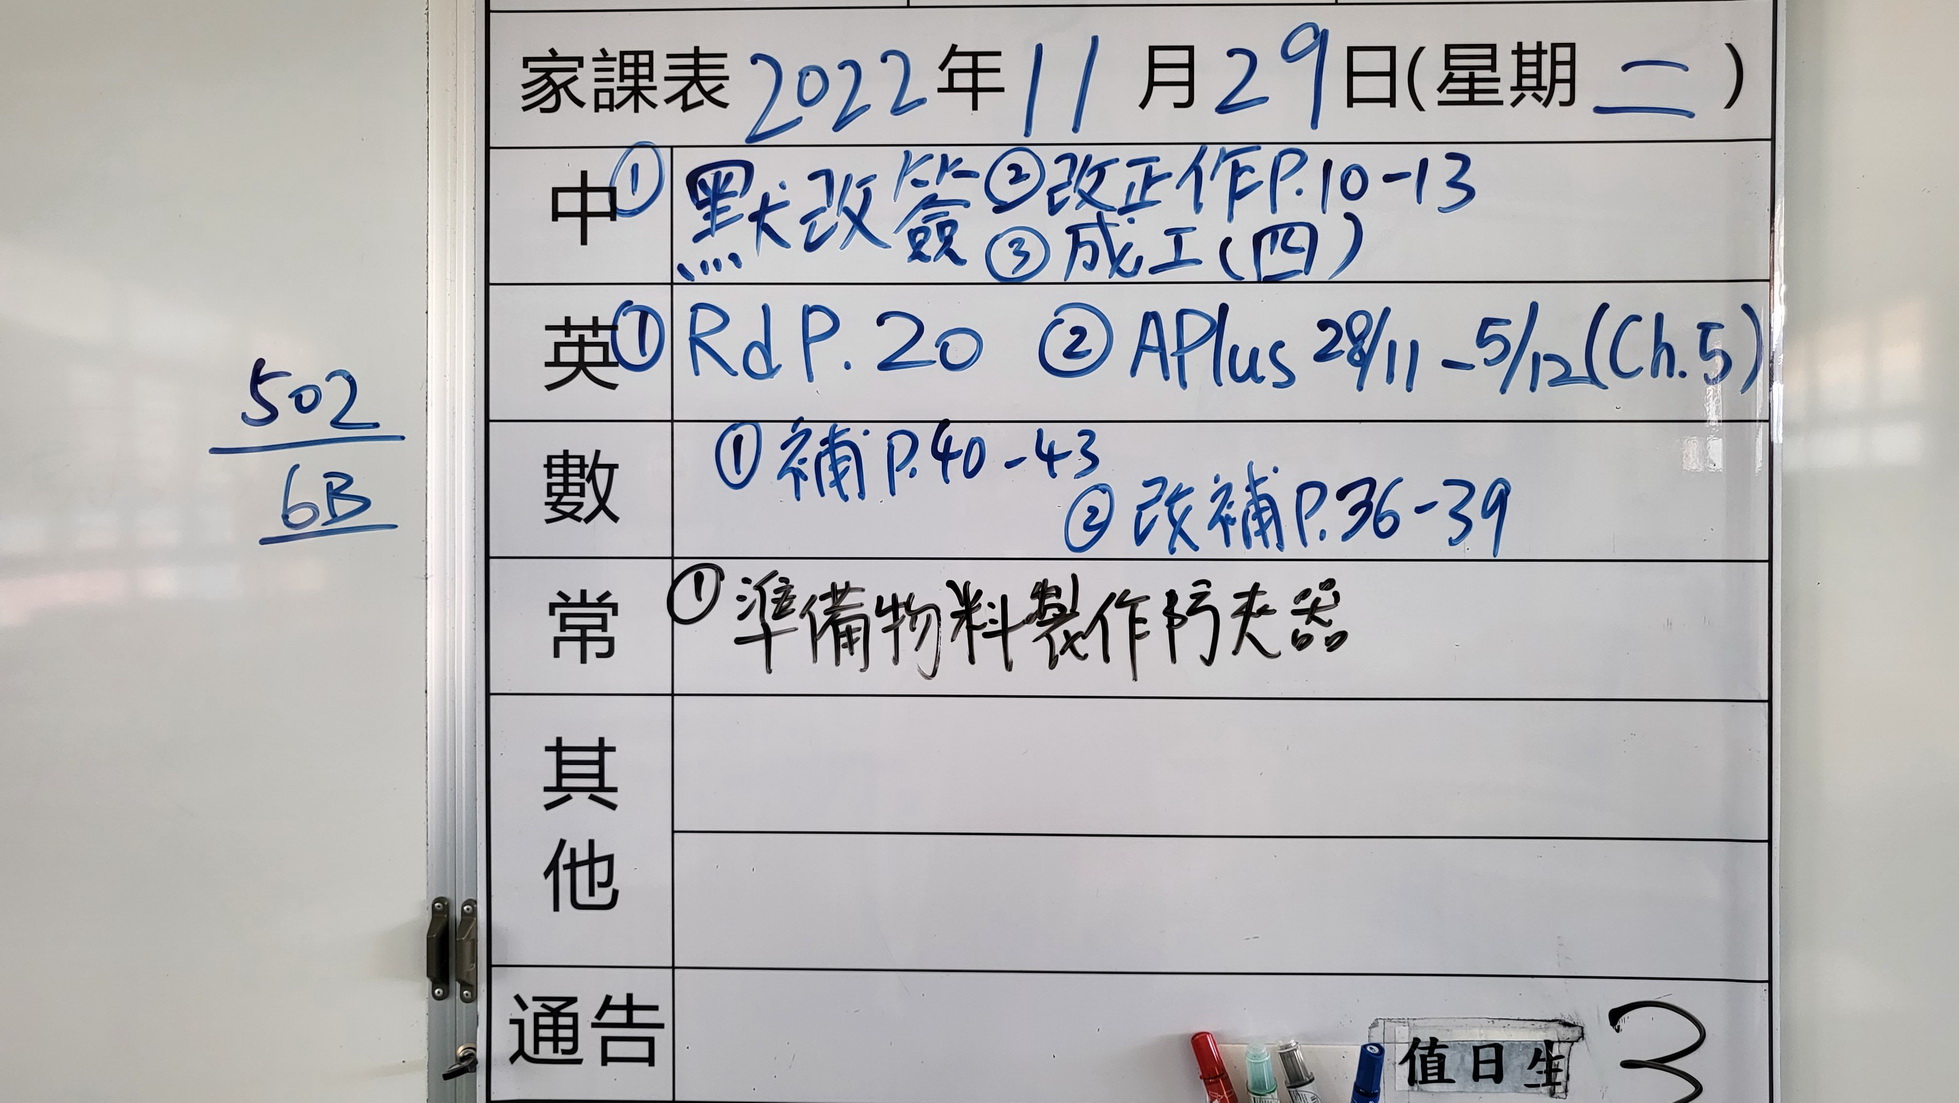 家課表 2022年11月29日(星期二)
中 ① 默改簽 ② 改正作P.10-13
③ 成工(四)
英 ① Rd P.20 ② APlus 28/11-5/12(Ch.5)
數 ① 補P.40-43
② 改補P.36-39
常 ① 準備物料製作防夾器
其他
通告
值日生 3
502
6B